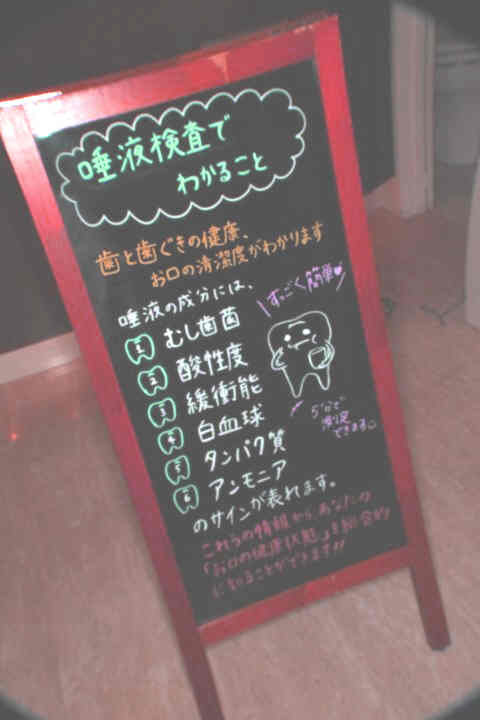 唾液検査で
わかること
歯と歯ぐきの健康、
お口の清潔度がわかります
唾液の成分には、
すっごく簡単♥
1 むし歯菌
2 酸性度
3 緩衝能
4 白血球
5 タンパク質
6 アンモニア
5分で
測定
できます。
のサインが表れます。
これらの情報から、あなたの
「お口の健康状態」を総合的
に知ることができます!!